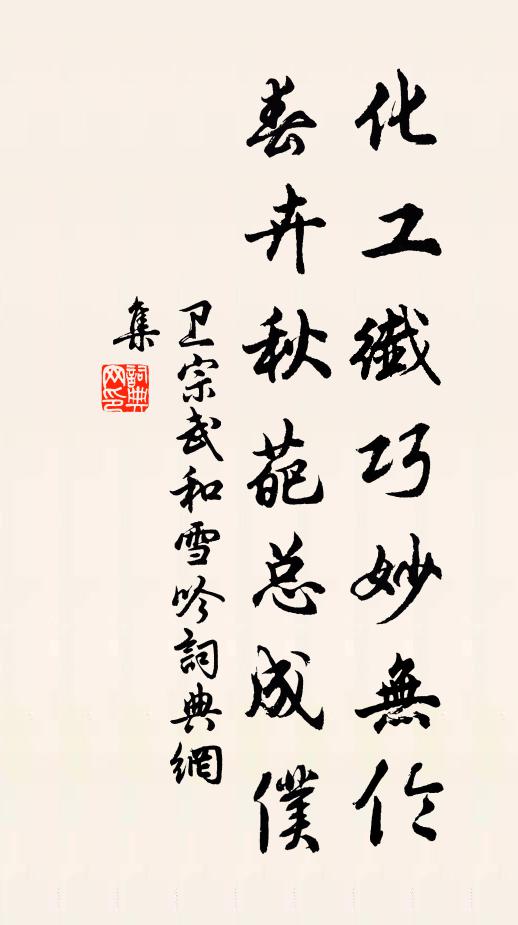 化工纖巧妙無伦
春卉秋葩总成僕
卫宗武和雪吟詞典網
集
詞典
网印